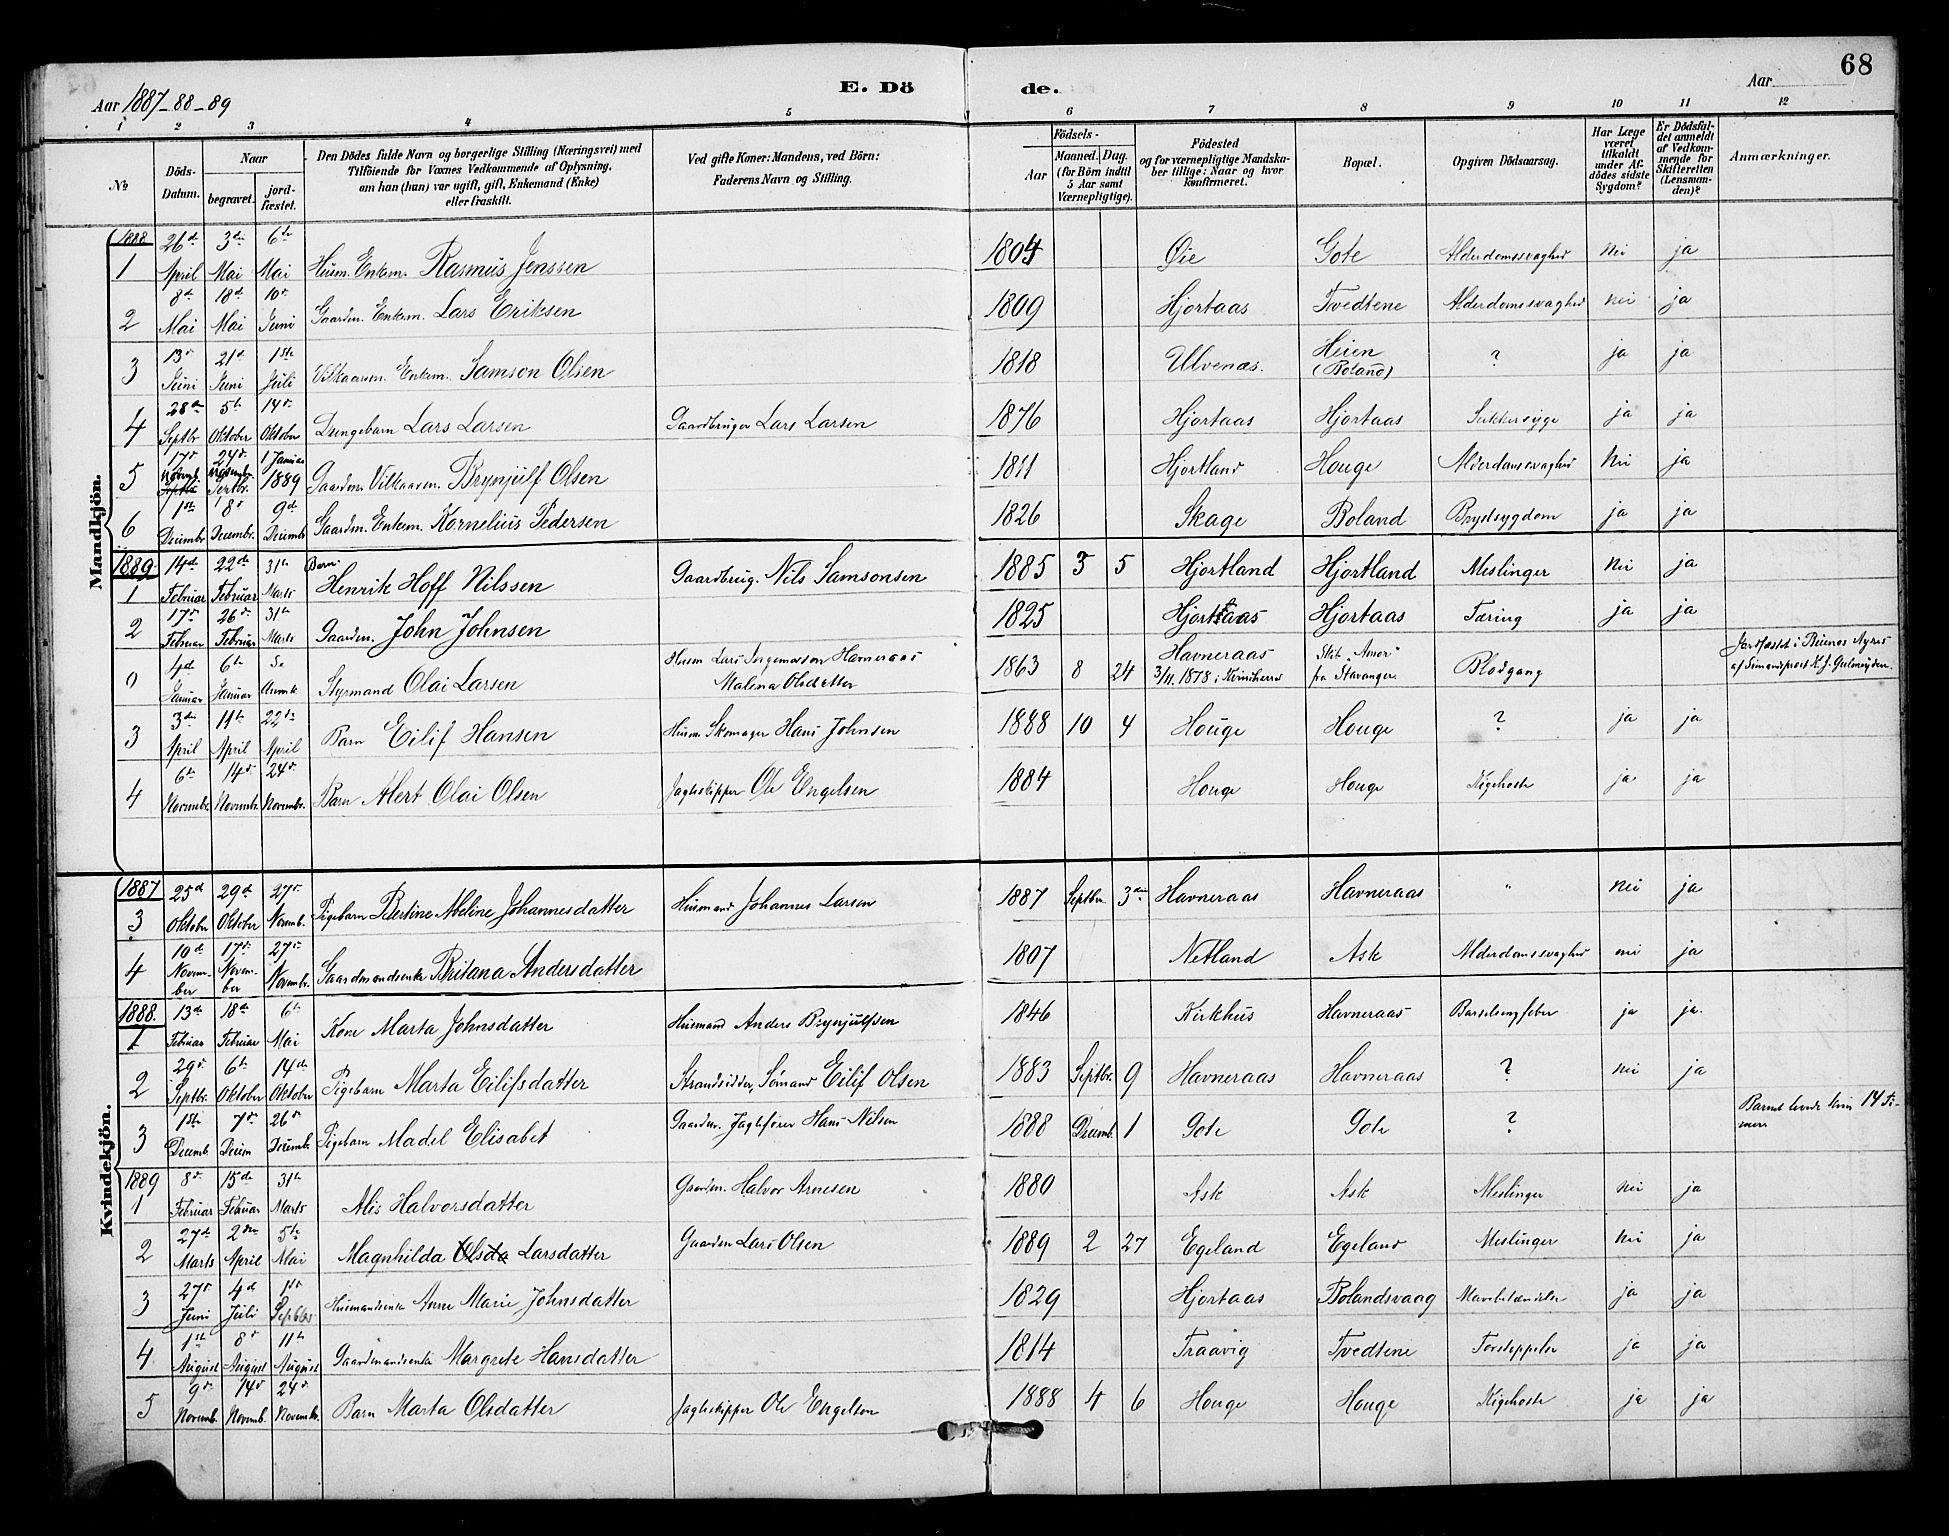 68
Aar 1887-88-89
E. Dö
de.
Aar
1 2 3 4 5 6 7 8 9 10 11 12
No
Döds-Datum.
Naar
begravet.
jord-fæstet.
Den Dödes fulde Navn og borgerlige Stilling (Næringsvei) med
Tilföiende for Voxnes Vedkommende af Oplysning,
om han (hun) var ugift, gift, Enkemand (Enke)
eller fraskilt.
Ved gifte Koner: Mandens, ved Börn:
Faderens Navn og Stilling.
Födsels-
Aar
Maaned. Dag.
(for Börn indtil
5 Aar samt
Værnepligtige).
Födested
og for værnepligtige Mandska-
ber tillige: Naar og hvor
konfirmeret.
Bopæl.
Opgiven Dödsaarsag.
Har Læge
været
tilkaldt
under Af-
dödes sidste
Sygdom?
Er Dödsfal-
det anmeldt
af Vedkom-
mende for
Skifteretten
(Lensman-
den)?
Anmærkninger.
Mandkjön.
1888
1 26de April 3die Mai 6te Mai Husm. Enkem. Rasmus Jenssen 1804 Øie Gote Alderdomssvaghed nei ja
2 8de Mai 18de Mai 10de Juni Gaardm. Enkem. Lars Eriksen 1809 Hjortaas Tvedtene Alderdomssvaghed nei ja
3 13de Juni 21de Juni 1ste Juli Vilkaarsm. Enkem. Samson Olsen 1818 Ulvenæs. Heien (Boland) ? ja ja
4 28de Septbr 5te Oktober 14de Oktober Drengebarn Lars Larsen Gaardbruger Lars Larsen 1876 Hjortaas Hjortaas Sukkersyge ja ja
5 17de Novemb. 24de Novembr. 1 Januar 1889 Gaardm. Vilkaarsm. Brynjulf Olsen 1811 Hjortland Houge Alderdomssvaghed Nei ja
6 1ste Decembr 8de Decembr. 9de Decembr Gaardm. Enkem. Kornelius Pedersen 1826 Skage Boland Brystsygdom ja ja
1889
1 14de Februar 22de Februar 31te Marts Barn Henrik Hoff Nilssen Gaardbrug. Nils Samsonsen 1885 3 5 Hjortland Hjortland Meslinger Nei ja
2 17de Februar 26de Februar 31te Marts Gaardm. John Johnsen 1825 Hjortaas Hjortaas Tæring ja ja
0 4de Januar 6te Januar Se Anmrk Styrmand Olai Larsen Husm Lars Ingemarson Havneraas Malena Olsdatter 1863 8 24 Havneraas 3/11. 1878 i Kvindherred Skib "Amor" fra Stavanger. Blodgang Jordfæstet i Buenos Ayres af Sømandspræst K. J. Gulmyden.
3 3die April 11te April 22de April Barn Eilif Hansen Husm Skomager Hans Johnsen 1888 10 4 Houge Houge ? ja ja
4 6te Novembr. 14de Novembr. 24de Novembr. Barn Alert Olai Olsen Jagteskipper Ole Engelsen 1884 Houge Houge Kighoste ja ja
Kvindekjön.
1887
3 25de Oktober 29de Oktober 27de Novemb. Pigebarn Bertine Abeline Johannesdatter Husmand Johannes Larsen 1887 Septbr. 3die Havneraas Havneraas " Nei ja
4 10de November 17de November 27de Novembr. Gaardmandsenke Britana Andersdatter 1807 Netland Ask Alderdomssvaghed nei ja
1888.
1 13de Februar 18de Februar 6te Mai Kone Marta Johnsdatter Husmand Anders Brynjulfsen 1846 Kirkhus Havneraas Barselsengfeber ja ja.
2 29de Septbr. 6te Oktober 14de Oktober Pigebarn Marta Eilifsdatter Strandsidder, Sømand Eilif Olsen 1883 Septbr. 9 Havneraas Havneraas ? nei ja
3 1ste Decemb. 7de Decem 26de Decembr. Pigebarn Madel Elisabet Gaardm. Jagtfører Hans Nilsen 1888 Decemb. 1 Gote Gote ? Barnet levede kun 14 Timer
1889
1 8de Februar 15de Februar 31te Marts Alis Halvorsdatter Gaardm. Halvor Arnesen 1880 Ask Ask Meslinger nei ja
2 27de Marts 2den April 5te Mai Magnhilda Olsda Larsdatter Gaardm Lars Olsen 1889 2 27 Egeland Egeland Meslinger Nei ja
3 27de Juni 4de Juli 1ste Septbr Husmandsenke Anne Marie Johnsdatter 1829 Hjortaas Bolandsvaag Mavebetændelse ja ja
4 1ste August 8de August 11te August Gaardmandsenke Margrete Hansdatter 1814 Traavig Tvedtene Forstoppelse ja ja
5 9de Novemb. 14de Novemb. 24de Novembr. Barn Marta Olsdatter Jagteskipper Ole Engelsen 1888 4 6 Houge Houge Kighoste ja ja